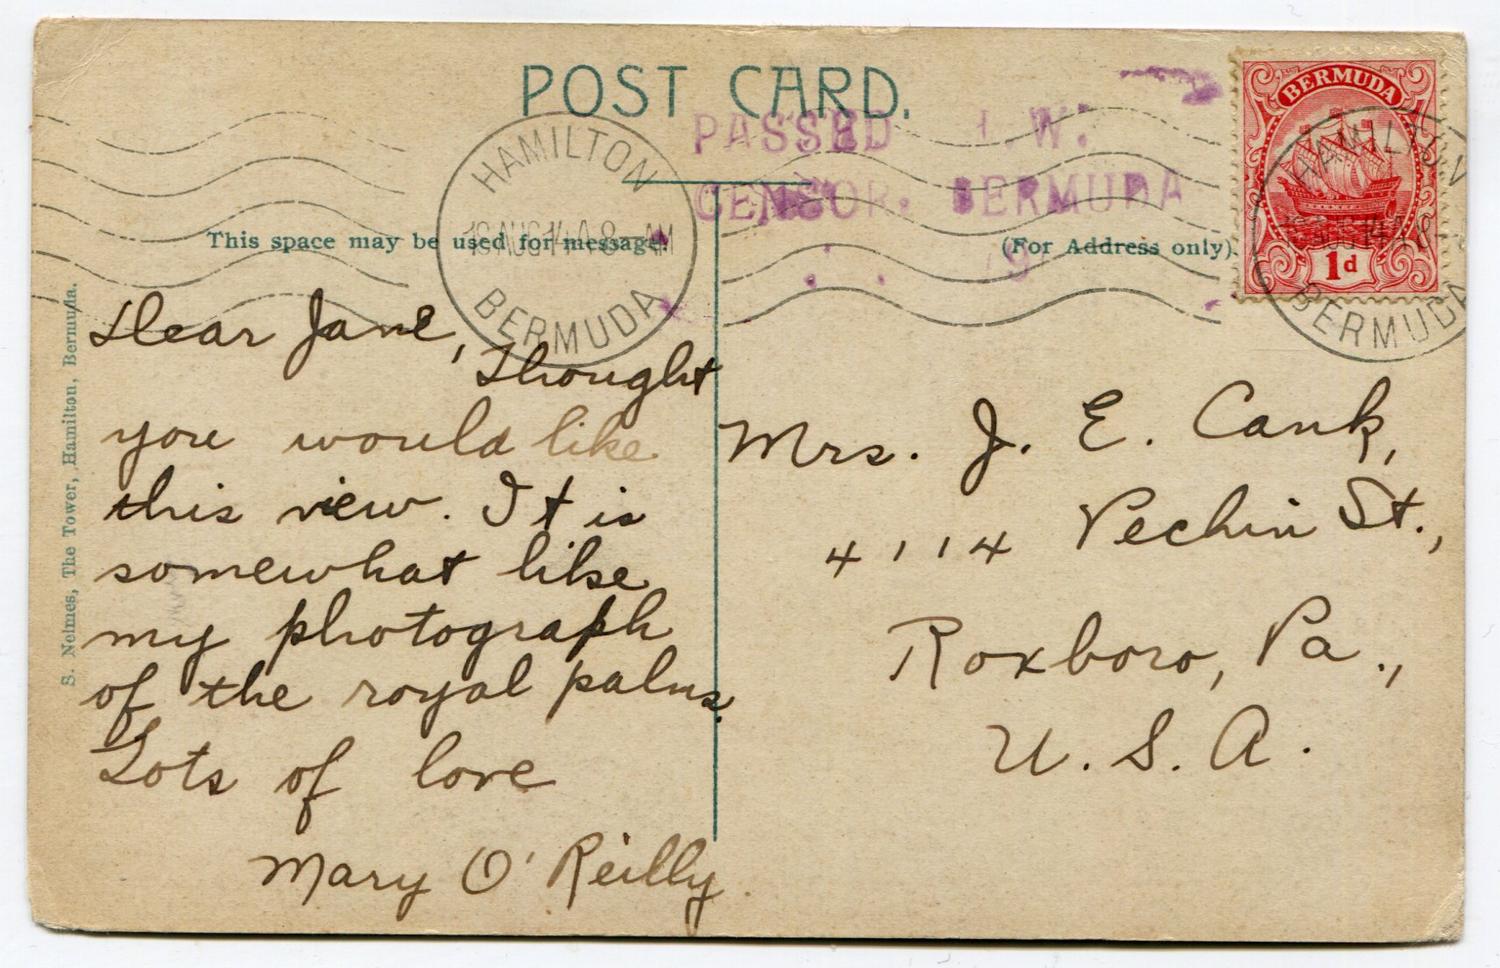 POST CARD.
PASSED I. W.
CENSOR. BERMUDA
BERMUDA
1d
HAMILTON
19 AUG 14 A 8 - AM
BERMUDA
HAMILTON
BERMUDA
This space may be used for message.
(For Address only).
S. Nelmes, The Tower, Hamilton, Bermuda.
Dear Jane,
Thought
you would like
this view. It is
somewhat like
my photograph
of the royal palms.
Lots of love
Mary O'Reilly.
Mrs. J. E. Cank,
4114 Pechin St.,
Roxboro, Pa.,
U. S. A.